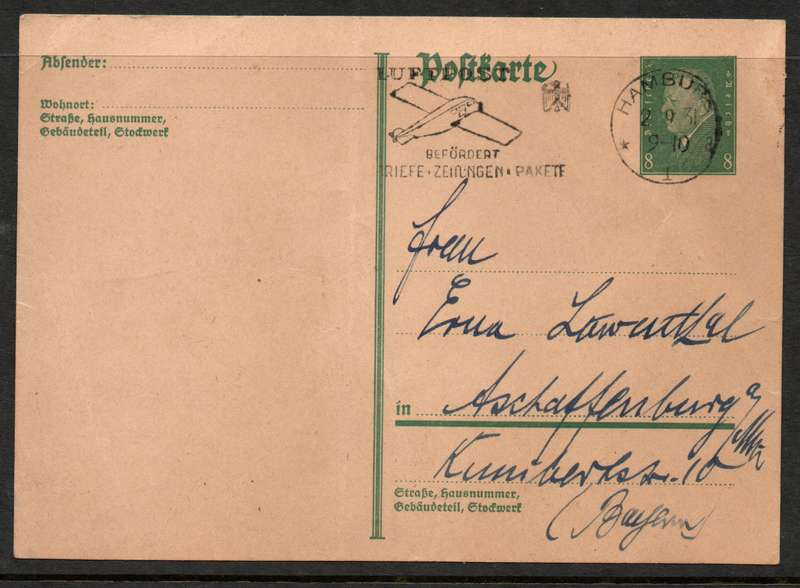 Absender:
Wohnort:
Straße, Hausnummer,
Gebäudeteil, Stockwerk
Postkarte
LUFTPOST
BEFÖRDERT
BRIEFE · ZEITUNGEN · PAKETE
HAMBURG
2.9.31
9-10
1
8 8
Frau
Erna Löwenthal
in Aschaffenburg a/
Kunibertstr. 10
Straße, Hausnummer,
Gebäudeteil, Stockwerk
(Bayern)